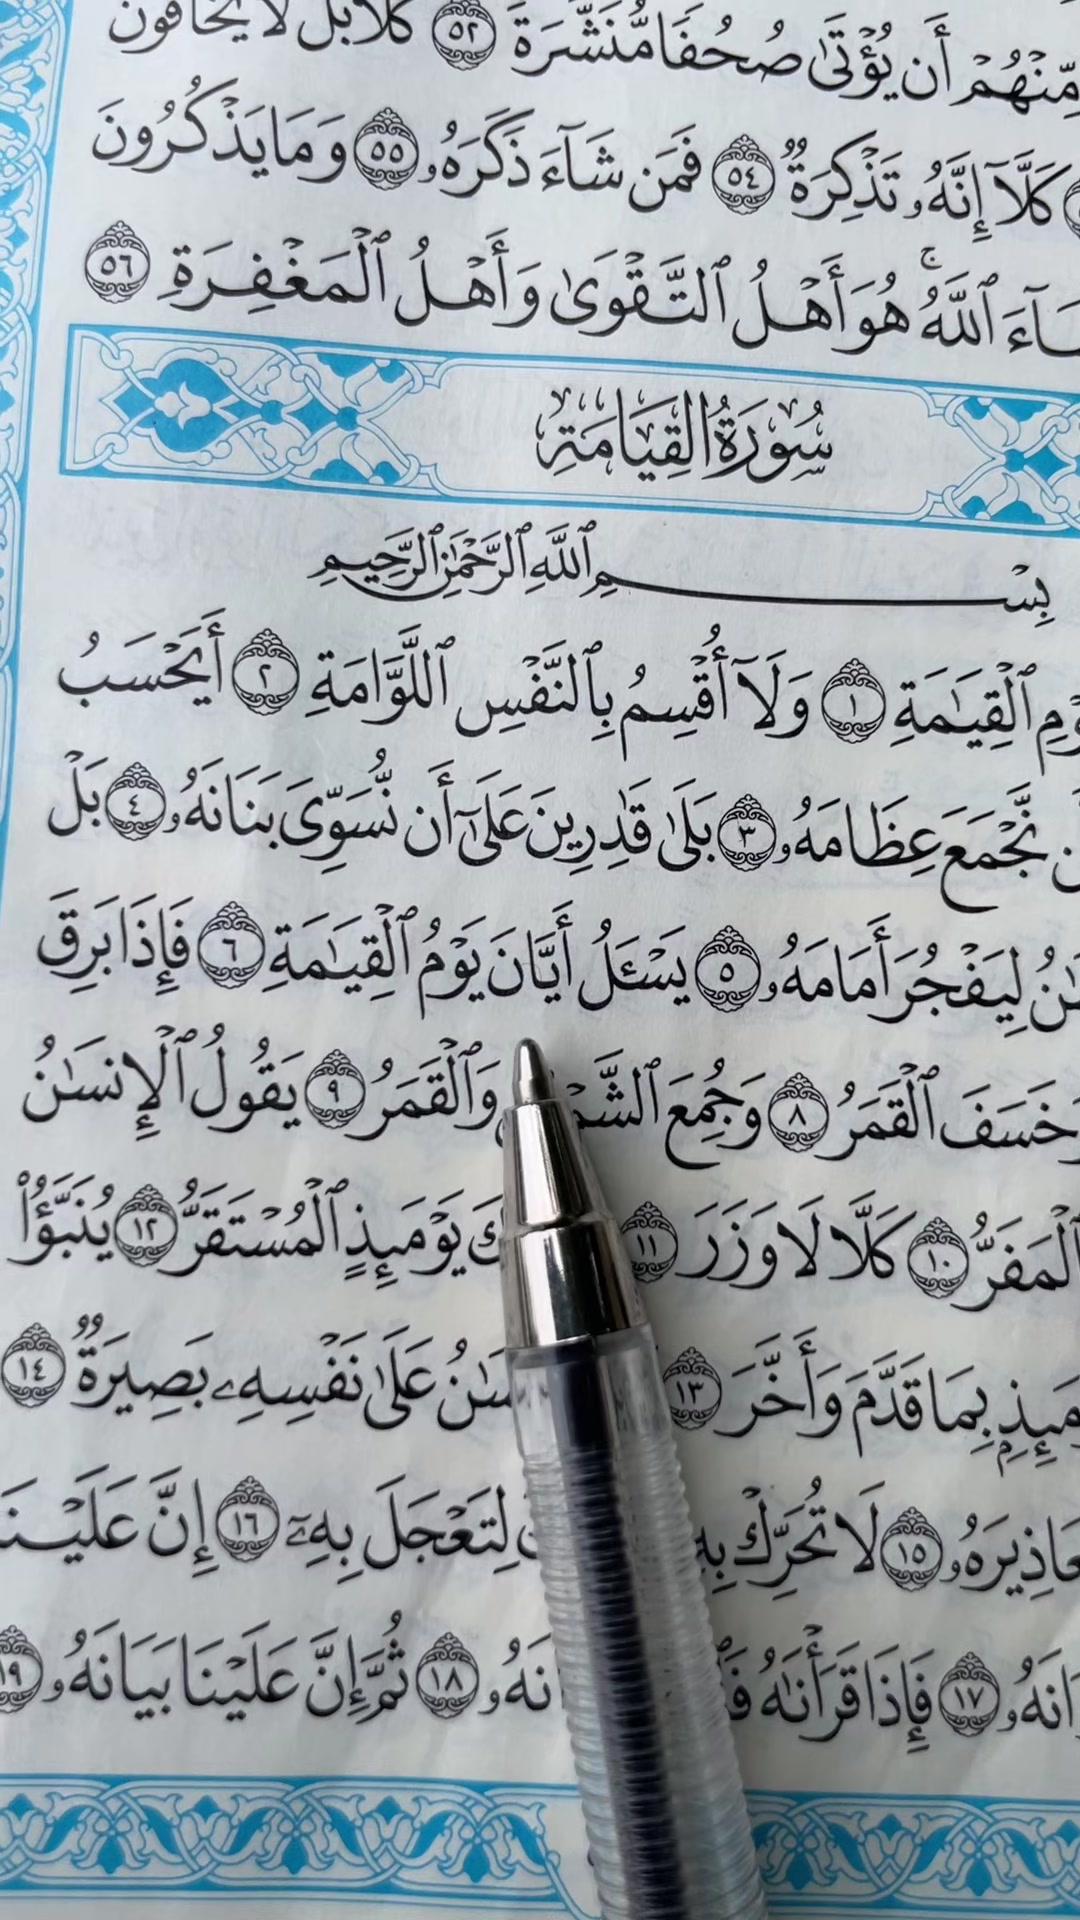 مِّنْهُمْ أَن يُؤْتَىٰ صُحُفًا مُّنَشَّرَةً ٥٢ كَلَّا بَل لَّا يَخَافُونَ
كَلَّآ إِنَّهُۥ تَذْكِرَةٌ ٥٤ فَمَن شَآءَ ذَكَرَهُۥ ٥٥ وَمَا يَذْكُرُونَ
ٱللَّهُ ۚ هُوَ أَهْلُ ٱلتَّقْوَىٰ وَأَهْلُ ٱلْمَغْفِرَةِ ٥٦
سُورَةُ الْقِيَامَةِ
بِسْمِ ٱللَّهِ ٱلرَّحْمَٰنِ ٱلرَّحِيمِ
ٱلْقِيَٰمَةِ ١ وَلَآ أُقْسِمُ بِٱلنَّفْسِ ٱللَّوَّامَةِ ٢ أَيَحْسَبُ
نَّجْمَعَ عِظَامَهُۥ ٣ بَلَىٰ قَٰدِرِينَ عَلَىٰٓ أَن نُّسَوِّىَ بَنَانَهُۥ ٤ بَلْ
لِيَفْجُرَ أَمَامَهُۥ ٥ يَسْـَٔلُ أَيَّانَ يَوْمُ ٱلْقِيَٰمَةِ ٦ فَإِذَا بَرِقَ
وَخَسَفَ ٱلْقَمَرُ ٨ وَجُمِعَ وَٱلْقَمَرُ ٩ يَقُولُ ٱلْإِنسَٰنُ
ٱلْمَفَرُّ ١٠ كَلَّا لَا وَزَرَ ١١ يَوْمَئِذٍ ٱلْمُسْتَقَرُّ ١٢ يُنَبَّؤُا۟
بِمَا قَدَّمَ وَأَخَّرَ ١٣ عَلَىٰ نَفْسِهِۦ بَصِيرَةٌ ١٤
١٥ لَا تُحَرِّكْ لِتَعْجَلَ بِهِۦٓ ١٦ إِنَّ عَلَيْنَا
١٧ فَإِذَا قَرَأْنَٰهُ ١٨ ثُمَّ إِنَّ عَلَيْنَا بَيَانَهُۥ ١٩